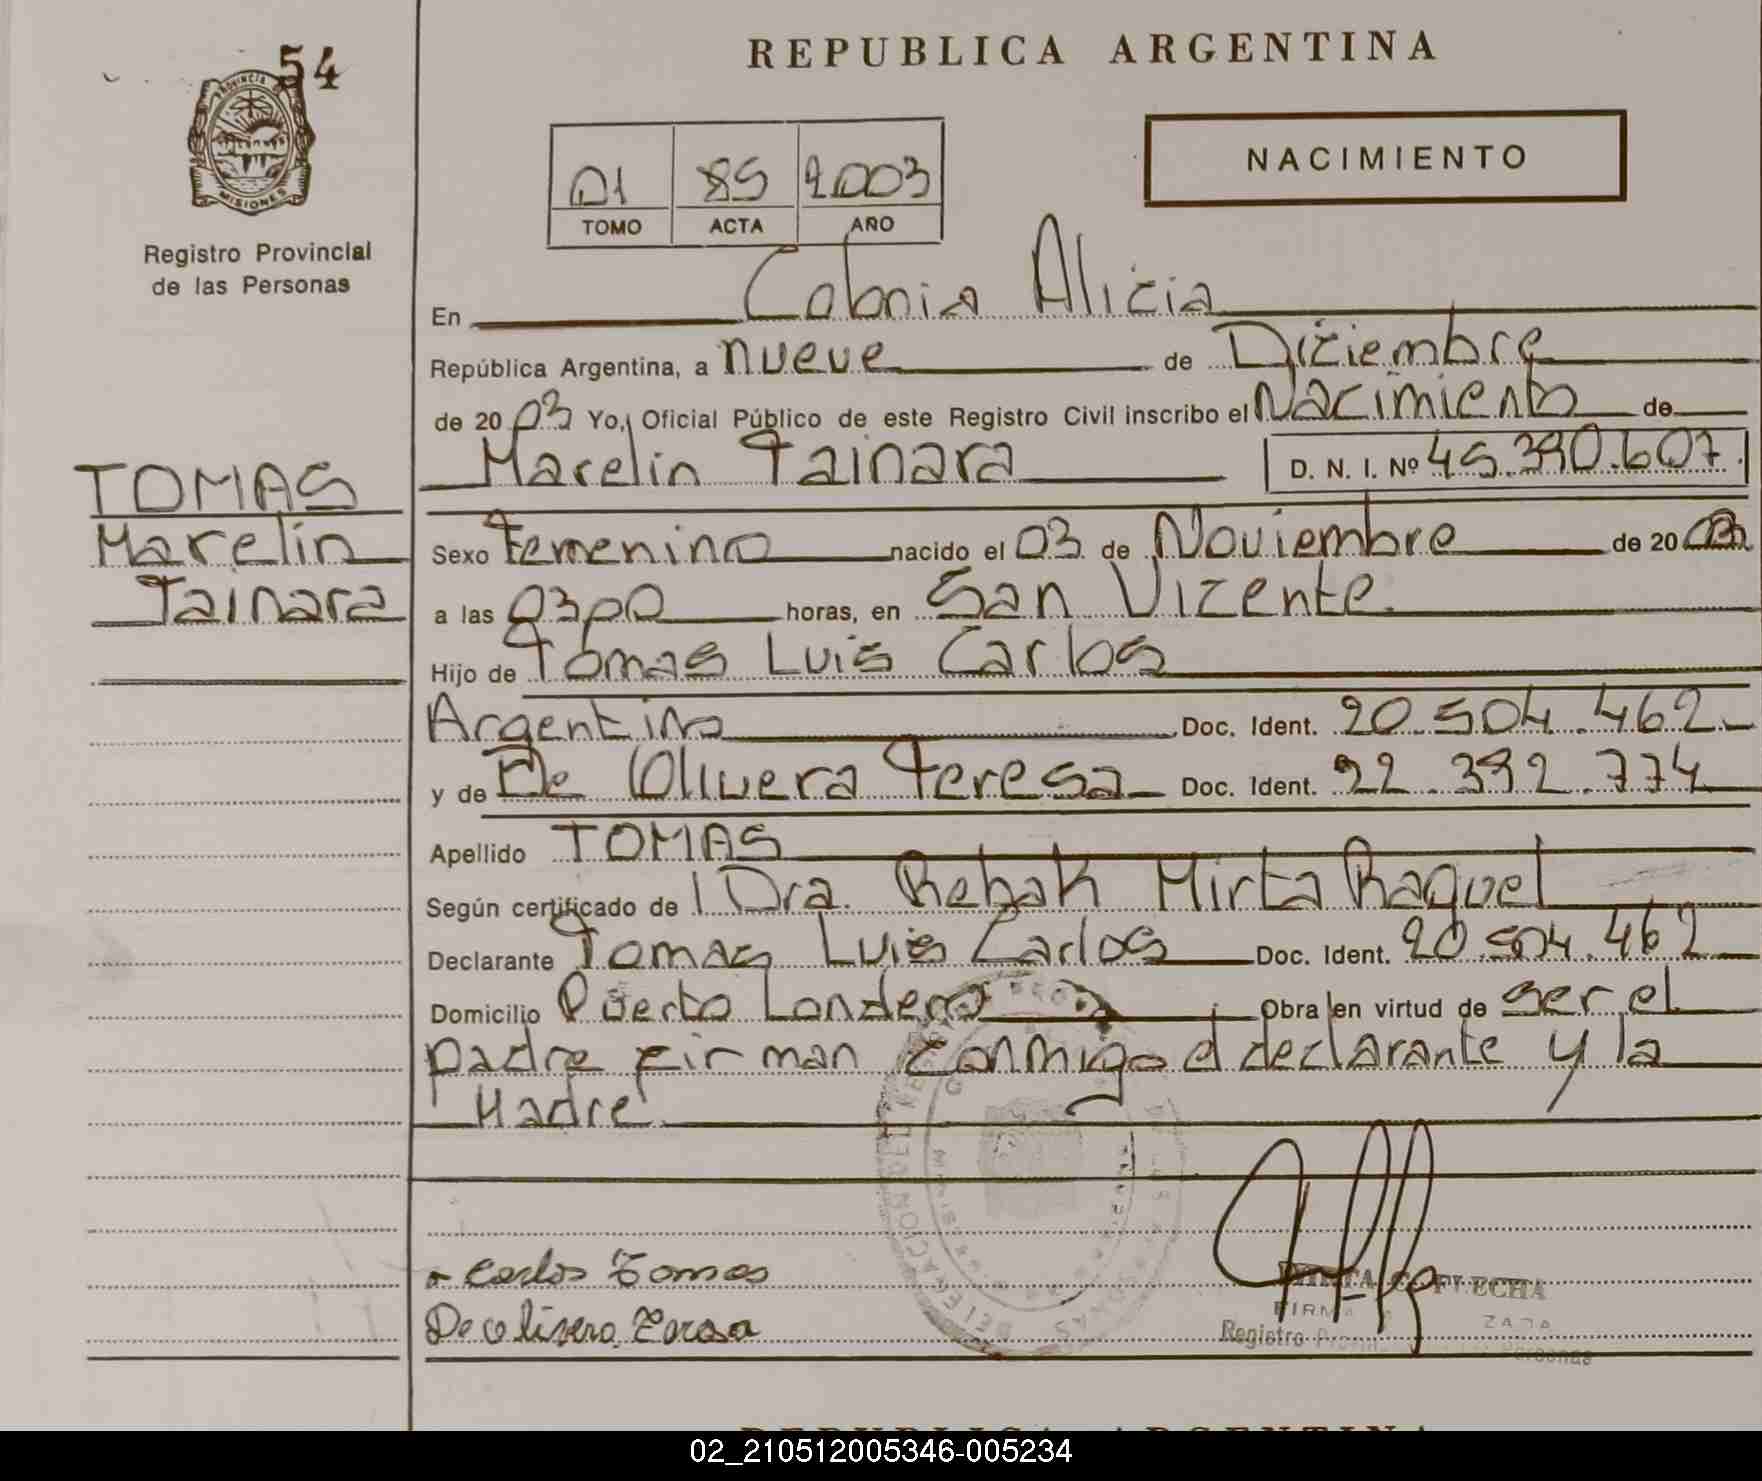 54
PROVINCIA DE
MISIONES
Registro Provincial
de las Personas
REPUBLICA ARGENTINA
NACIMIENTO
01 85 2003
TOMO ACTA AÑO
TOMAS
Marelin
Tainara
En Colonia Alicia
República Argentina, a nueve de Diciembre
de 2003 Yo, Oficial Público de este Registro Civil inscribo el Nacimiento de
Marelin Tainara D. N. I. Nº 45.390.607.
Sexo Femenino nacido el 03 de Noviembre de 2003
a las 0300 horas, en San Vicente
Hijo de Tomas Luis Carlos
Argentino Doc. Ident. 20.504.462
y de De Olivera Teresa Doc. Ident. 22.392.774
Apellido TOMAS
Según certificado de Dra. Rebak Mirta Raquel
Declarante Tomas Luis Carlos Doc. Ident. 20.504.462
Domicilio Puerto Londero Obra en virtud de ser el
padre firman conmigo el declarante y la
Madre
Carlos Tomas
De olivera
FLECHA
FIRMA
Registro
Personas
REPUBLICA ARGENTINA
02_210512005346-005234